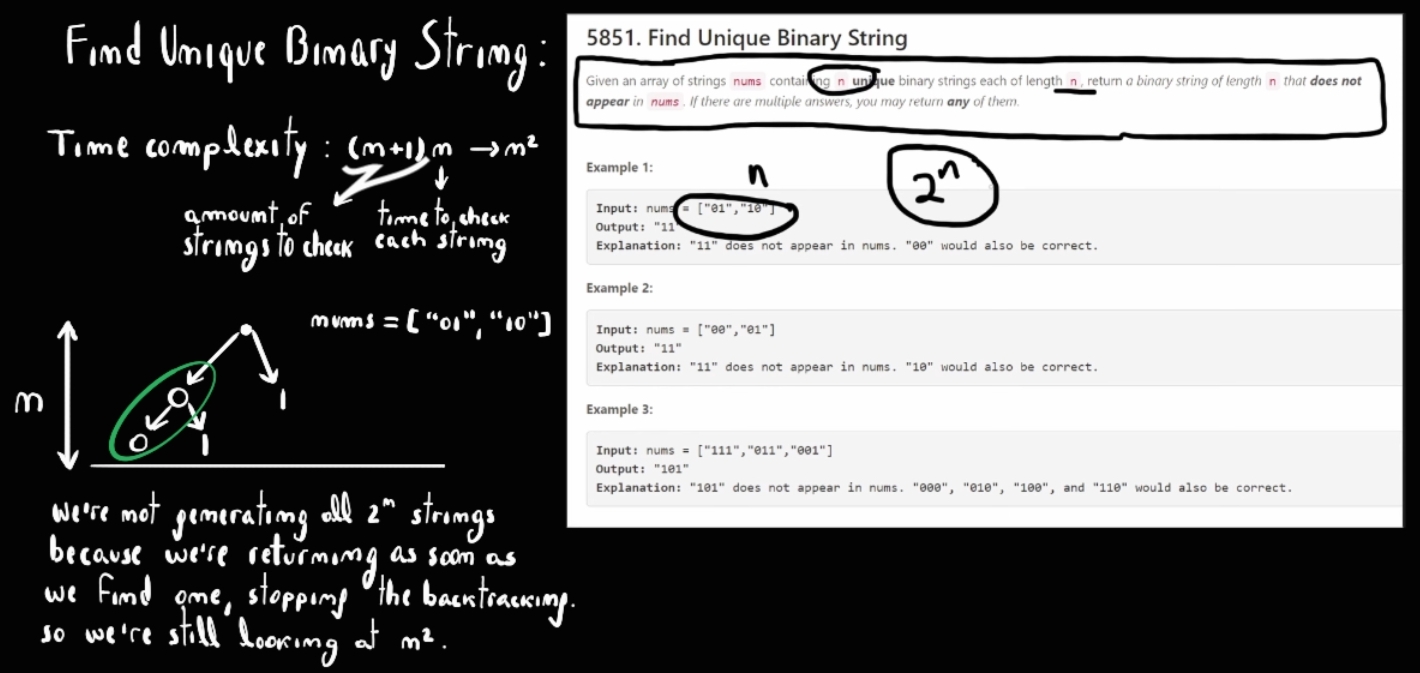 Find Unique Binary String:
Time complexity: (n+1)n → n²
amount of
strings to check
time to check
each string
nums = ["01", "10"]
n
0
1
0
1
we're not generating all 2ⁿ strings
because we're returning as soon as
we find one, stopping the backtracking.
so we're still looking at n².
5851. Find Unique Binary String
Given an array of strings nums containing n unique binary strings each of length n, return a binary string of length n that does not
appear in nums. If there are multiple answers, you may return any of them.
Example 1:
n
2ⁿ
Input: nums = ["01","10"]
Output: "11"
Explanation: "11" does not appear in nums. "00" would also be correct.
Example 2:
Input: nums = ["00","01"]
Output: "11"
Explanation: "11" does not appear in nums. "10" would also be correct.
Example 3:
Input: nums = ["111","011","001"]
Output: "101"
Explanation: "101" does not appear in nums. "000", "010", "100", and "110" would also be correct.